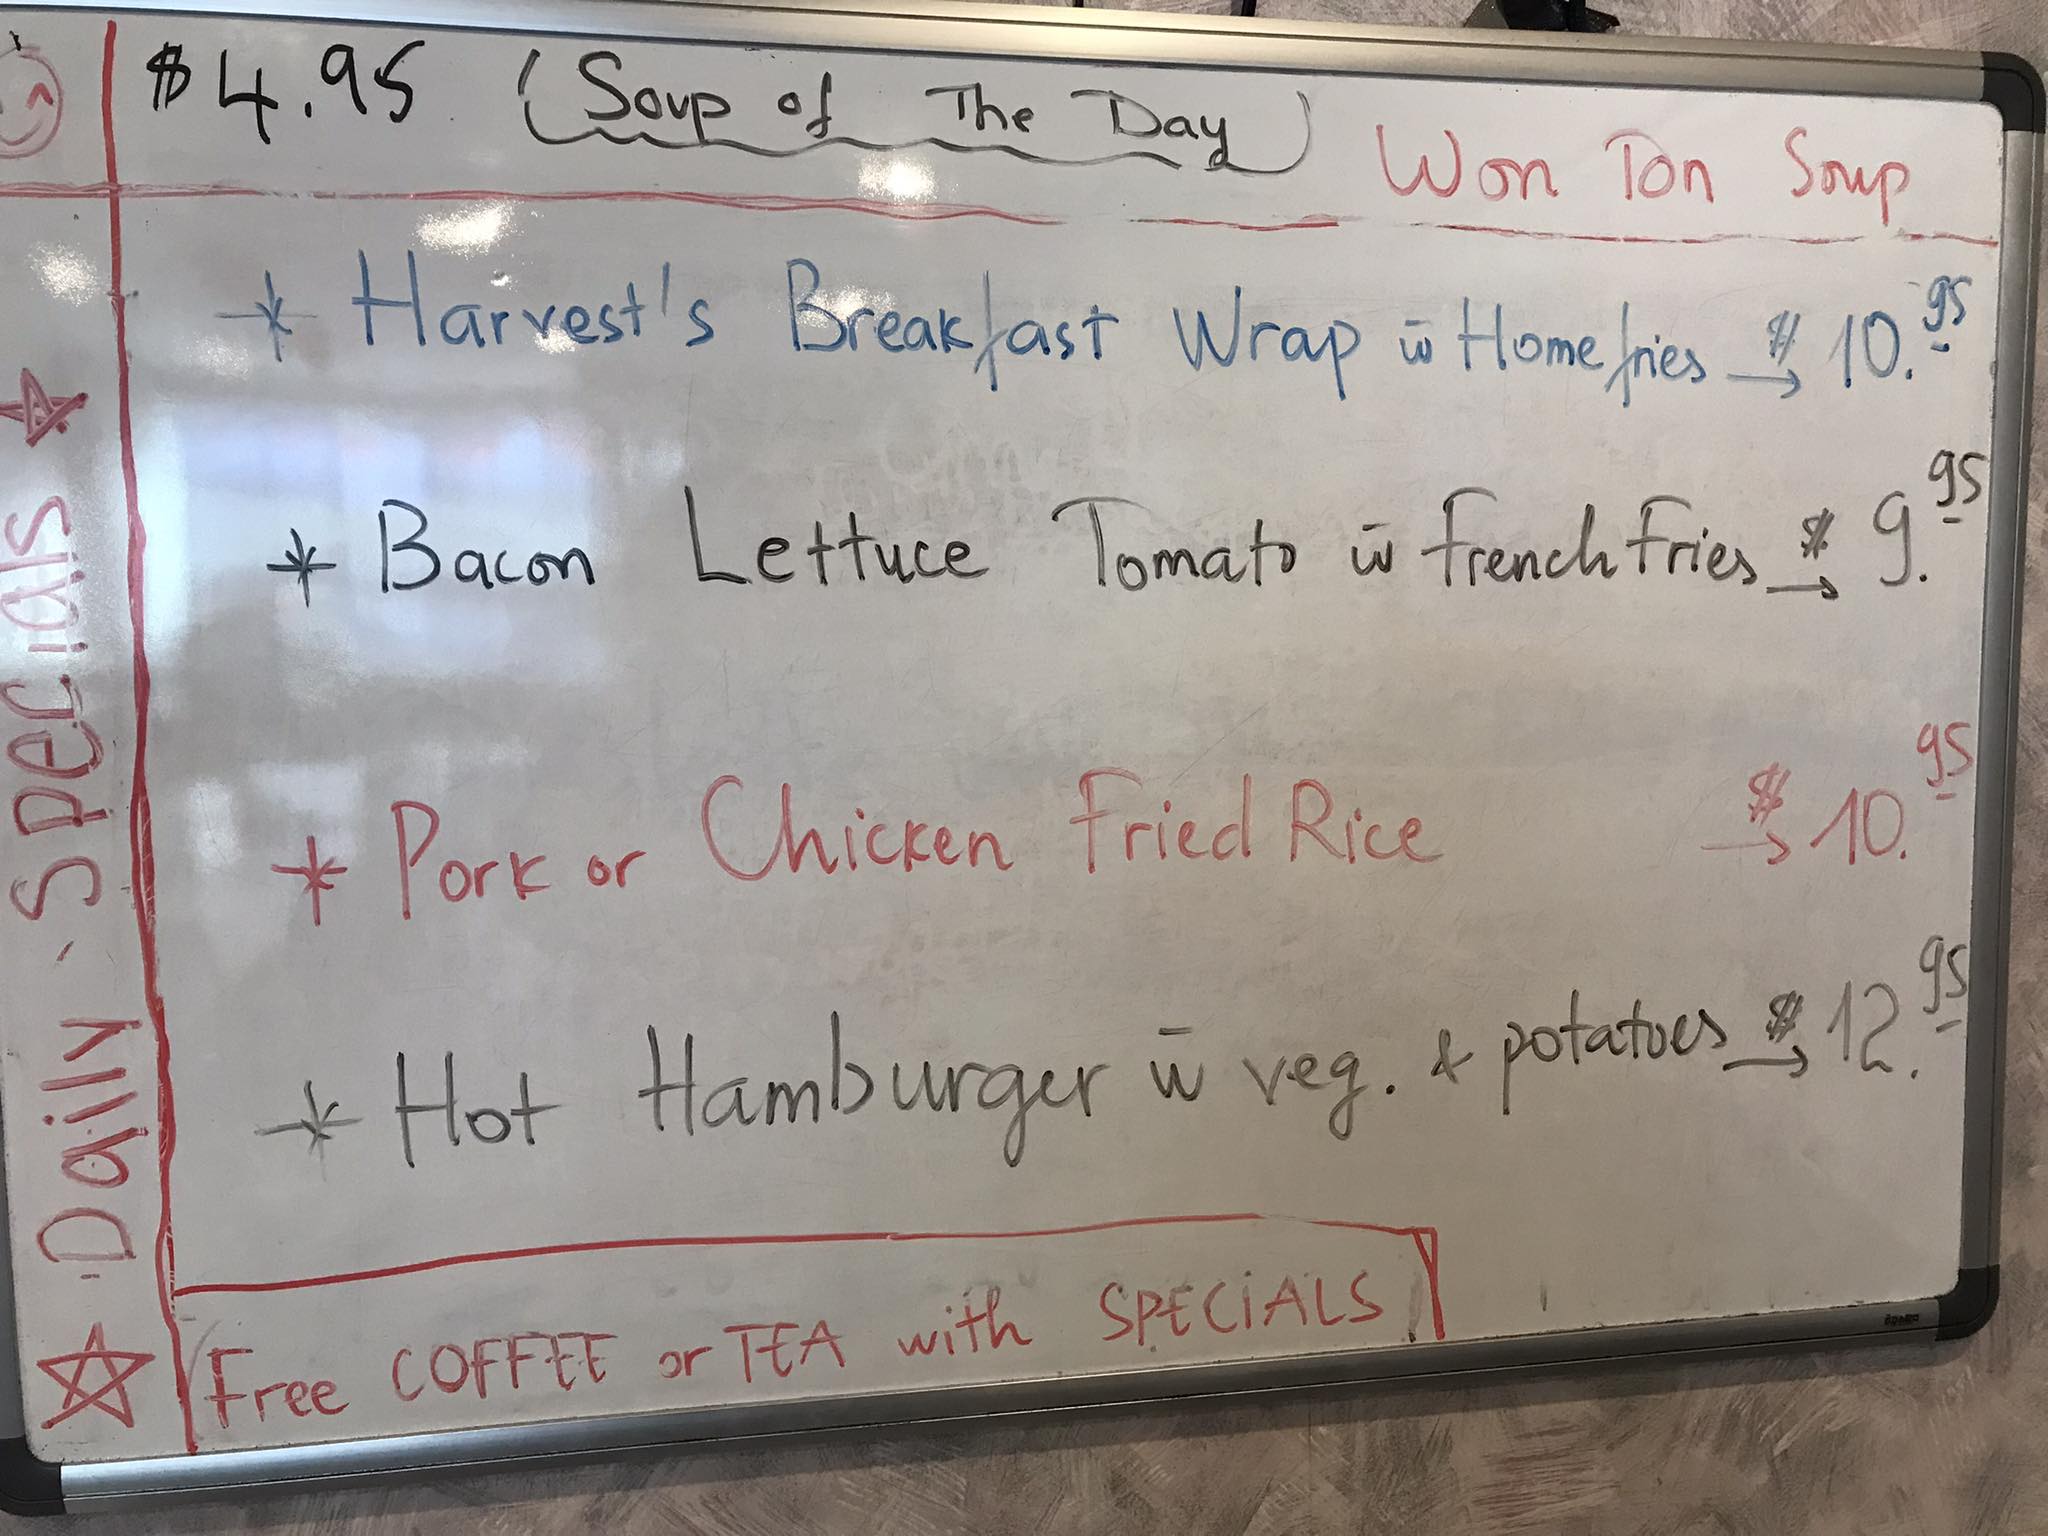 $4.95 (Soup of The Day) Won Ton Soup
* Harvest's Breakfast Wrap w̄ Homefries → $10.95
* Bacon Lettuce Tomato w̄ french fries → $9.95
* Pork or Chicken Fried Rice → $10.95
* Hot Hamburger w̄ veg. & potatoes → $12.95
Free COFFEE or TEA with SPECiALS
Daily Specials